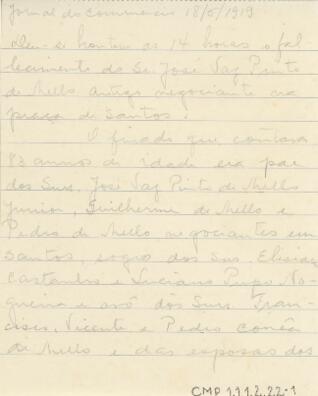 Jornal do Commercio 18/5/1919
Deu-se hontem as 14 horas o fal-
lecimento do Sr. José Vaz Pinto
de Mello antigo negociante na
praça de Santos.
O finado que contava
83 annos de idade era pae
dos Snrs. José Vaz Pinto de Mello
Junior, Guilherme de Mello e
Pedro de Mello negociantes em
Santos, sogro dos Snrs.
Castanho e Luciano Pupo No-
gueira e avô dos Snrs. Fran-
cisco, Vicente e Pedro Corrêa
de Mello e das esposas dos
CMP 1.1.1.2.22-1